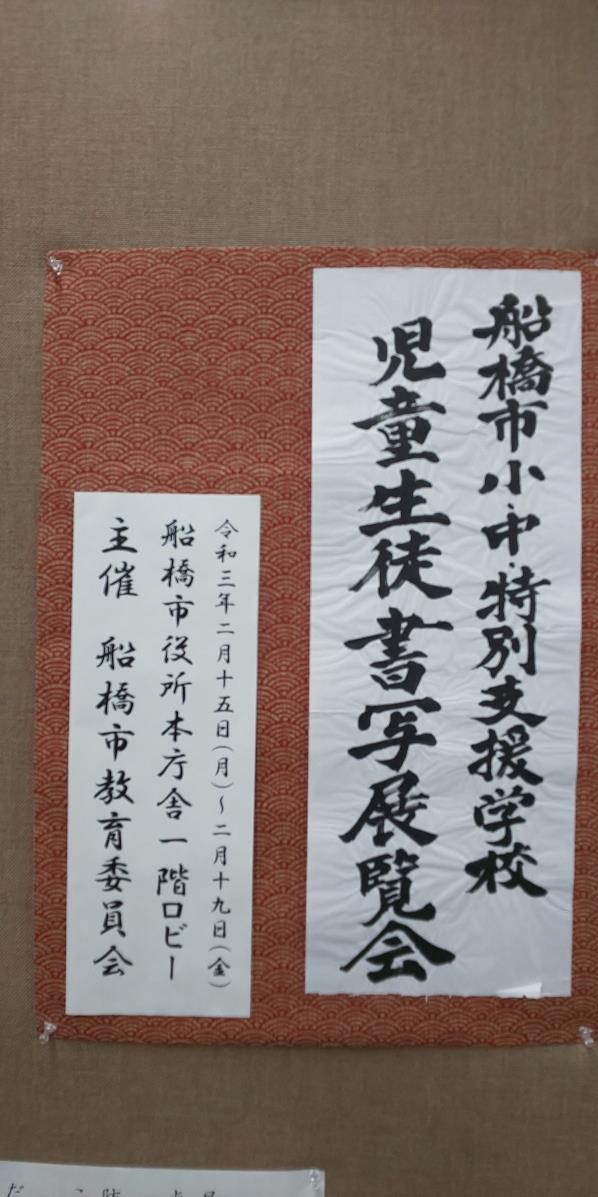 船橋市小・中・特別支援学校
児童生徒書写展覧会
令和三年二月十五日(月)～二月十九日(金)
船橋市役所本庁舎一階ロビー
主催 船橋市教育委員会